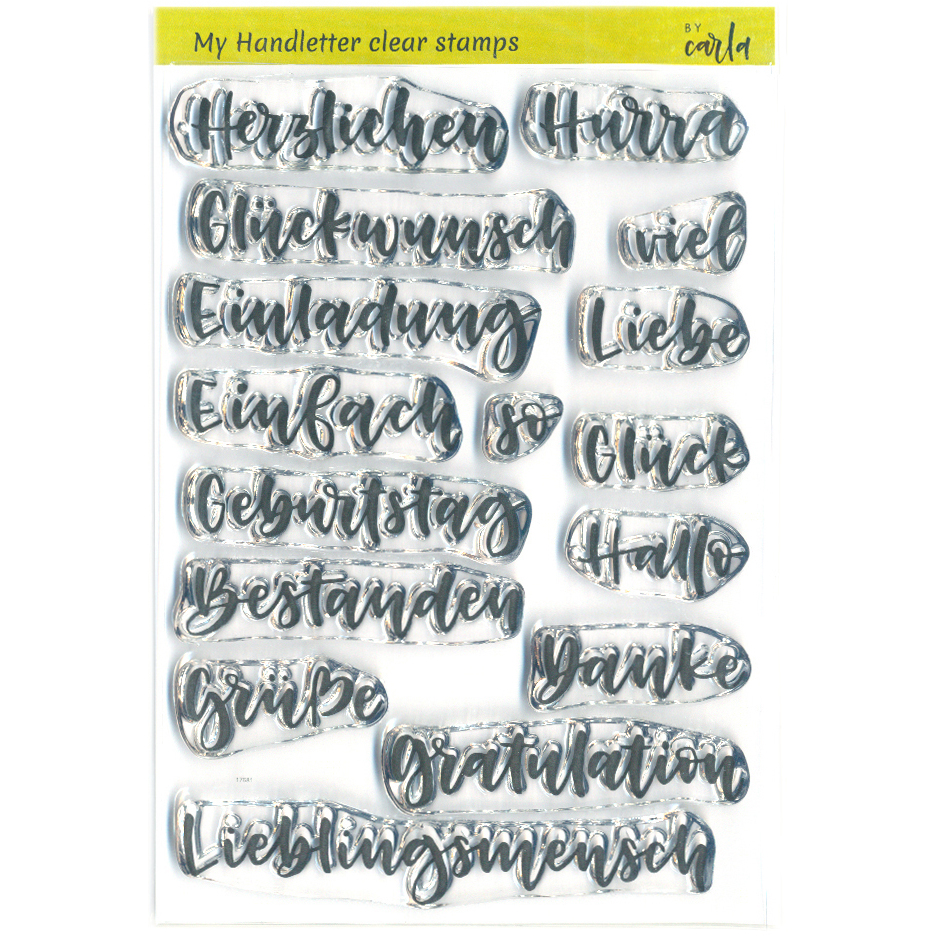 My Handletter clear stamps
BY
carla
Herzlichen
Hurra
Glückwunsch
viel
Einladung
Liebe
Einfach
so
Glück
Geburtstag
Hallo
Bestanden
Danke
Grüße
Gratulation
Lieblingsmensch